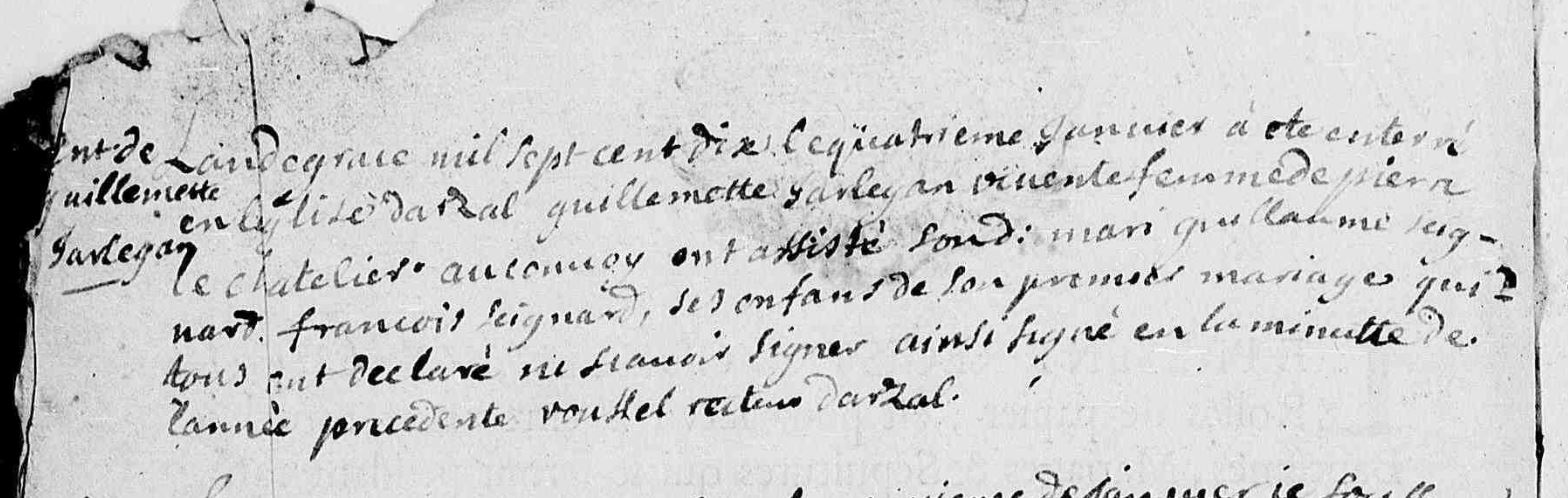 ent de
guillemette
Jarlegan
Landegrace mil sept cent dix le quatrieme Januier à ete enterré
en l'église darzal guillemette Jarlegan viuente femme de pierre
le chatelier au conuoy ont assisté son d: mari guillaume seig-
nard. francois seignard, ses enfans de son premier mariage qui
tous ont declaré ne scauoir signer ainsi signé en la minutte de
l'année precedente roussel recteur darzal.
de januier je